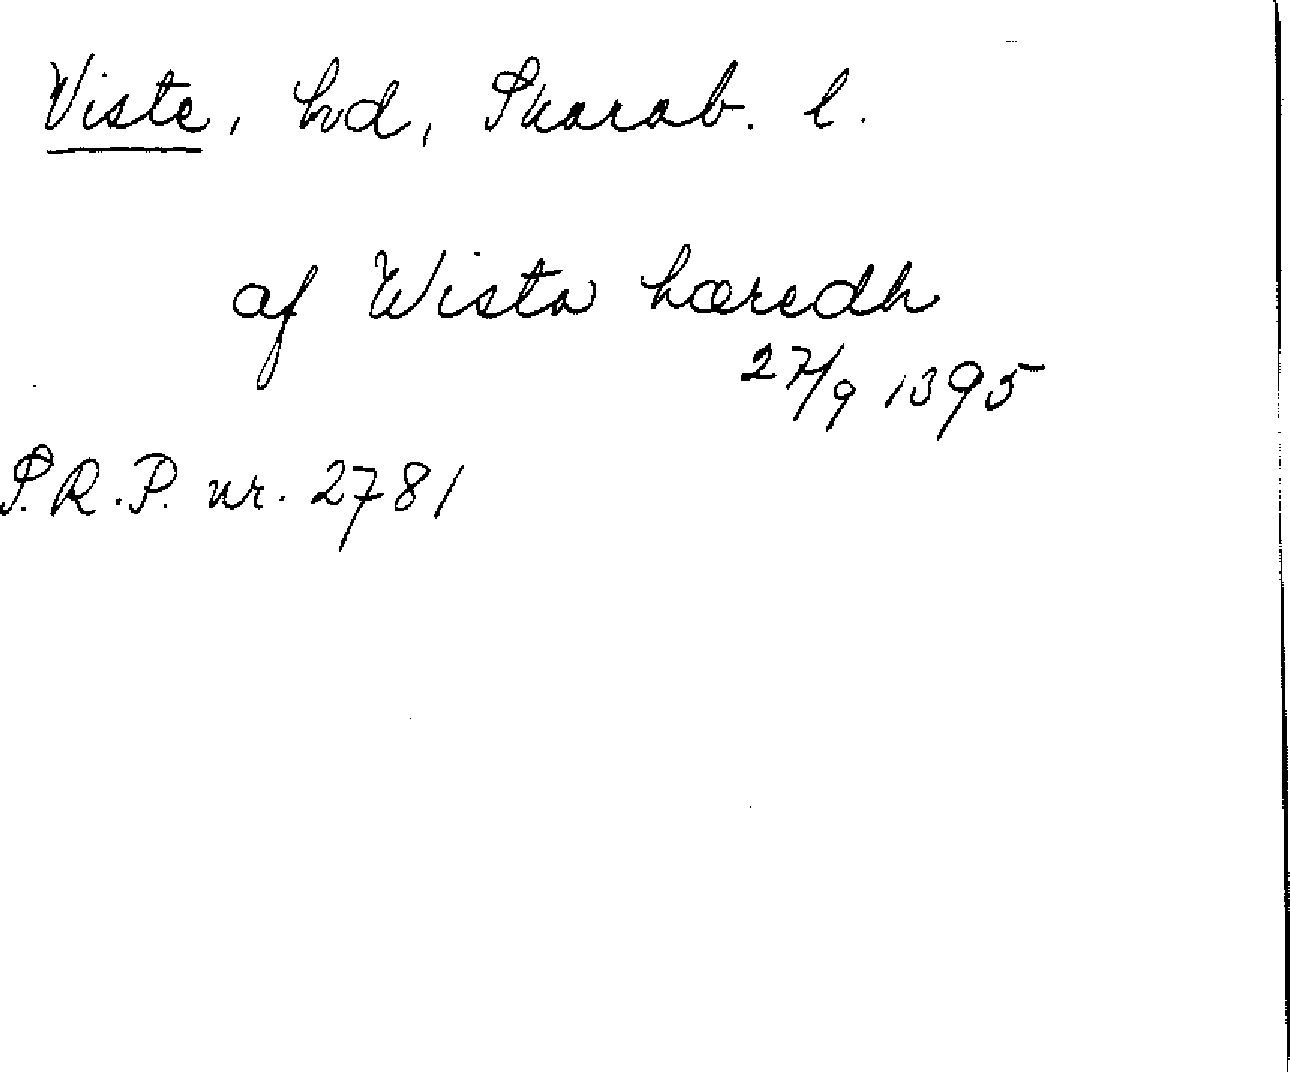 Viste, hd, Skarab. l.
af Wista hæredh
27/9 1395
S.R.P. nr. 2781